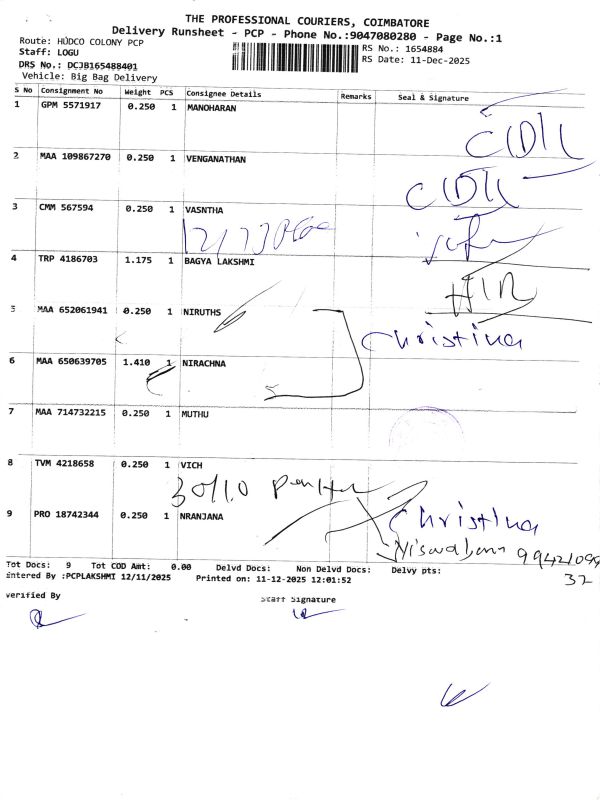 THE PROFESSIONAL COURIERS, COIMBATORE
Delivery Runsheet - PCP - Phone No.:9047080280 - Page No.:1
Route: HUDCO COLONY PCP
RS No.: 1654884
Staff: LOGU
RS Date: 11-Dec-2025
DRS No.: DCJB165488401
Vehicle: Big Bag Delivery
S No Consignment No Weight PCS Consignee Details Remarks Seal & Signature
1 GPM 5571917 0.250 1 MANOHARAN
2 MAA 109867270 0.250 1 VENGANATHAN
3 CMM 567594 0.250 1 VASNTHA
4 TRP 4186703 1.175 1 BAGYA LAKSHMI
5 MAA 652061941 0.250 1 NIRUTHS
Christina
6 MAA 650639705 1.410 1 NIRACHNA
7 MAA 714732215 0.250 1 MUTHU
8 TVM 4218658 0.250 1 VICH
9 PRO 18742344 0.250 1 NRANJANA
Christina
Tot Docs: 9 Tot COD Amt: 0.00 Delvd Docs: Non Delvd Docs: Delvy pts:
32
ntered By :PCPLAKSHMI 12/11/2025 Printed on: 11-12-2025 12:01:52
verified By
Staff Signature